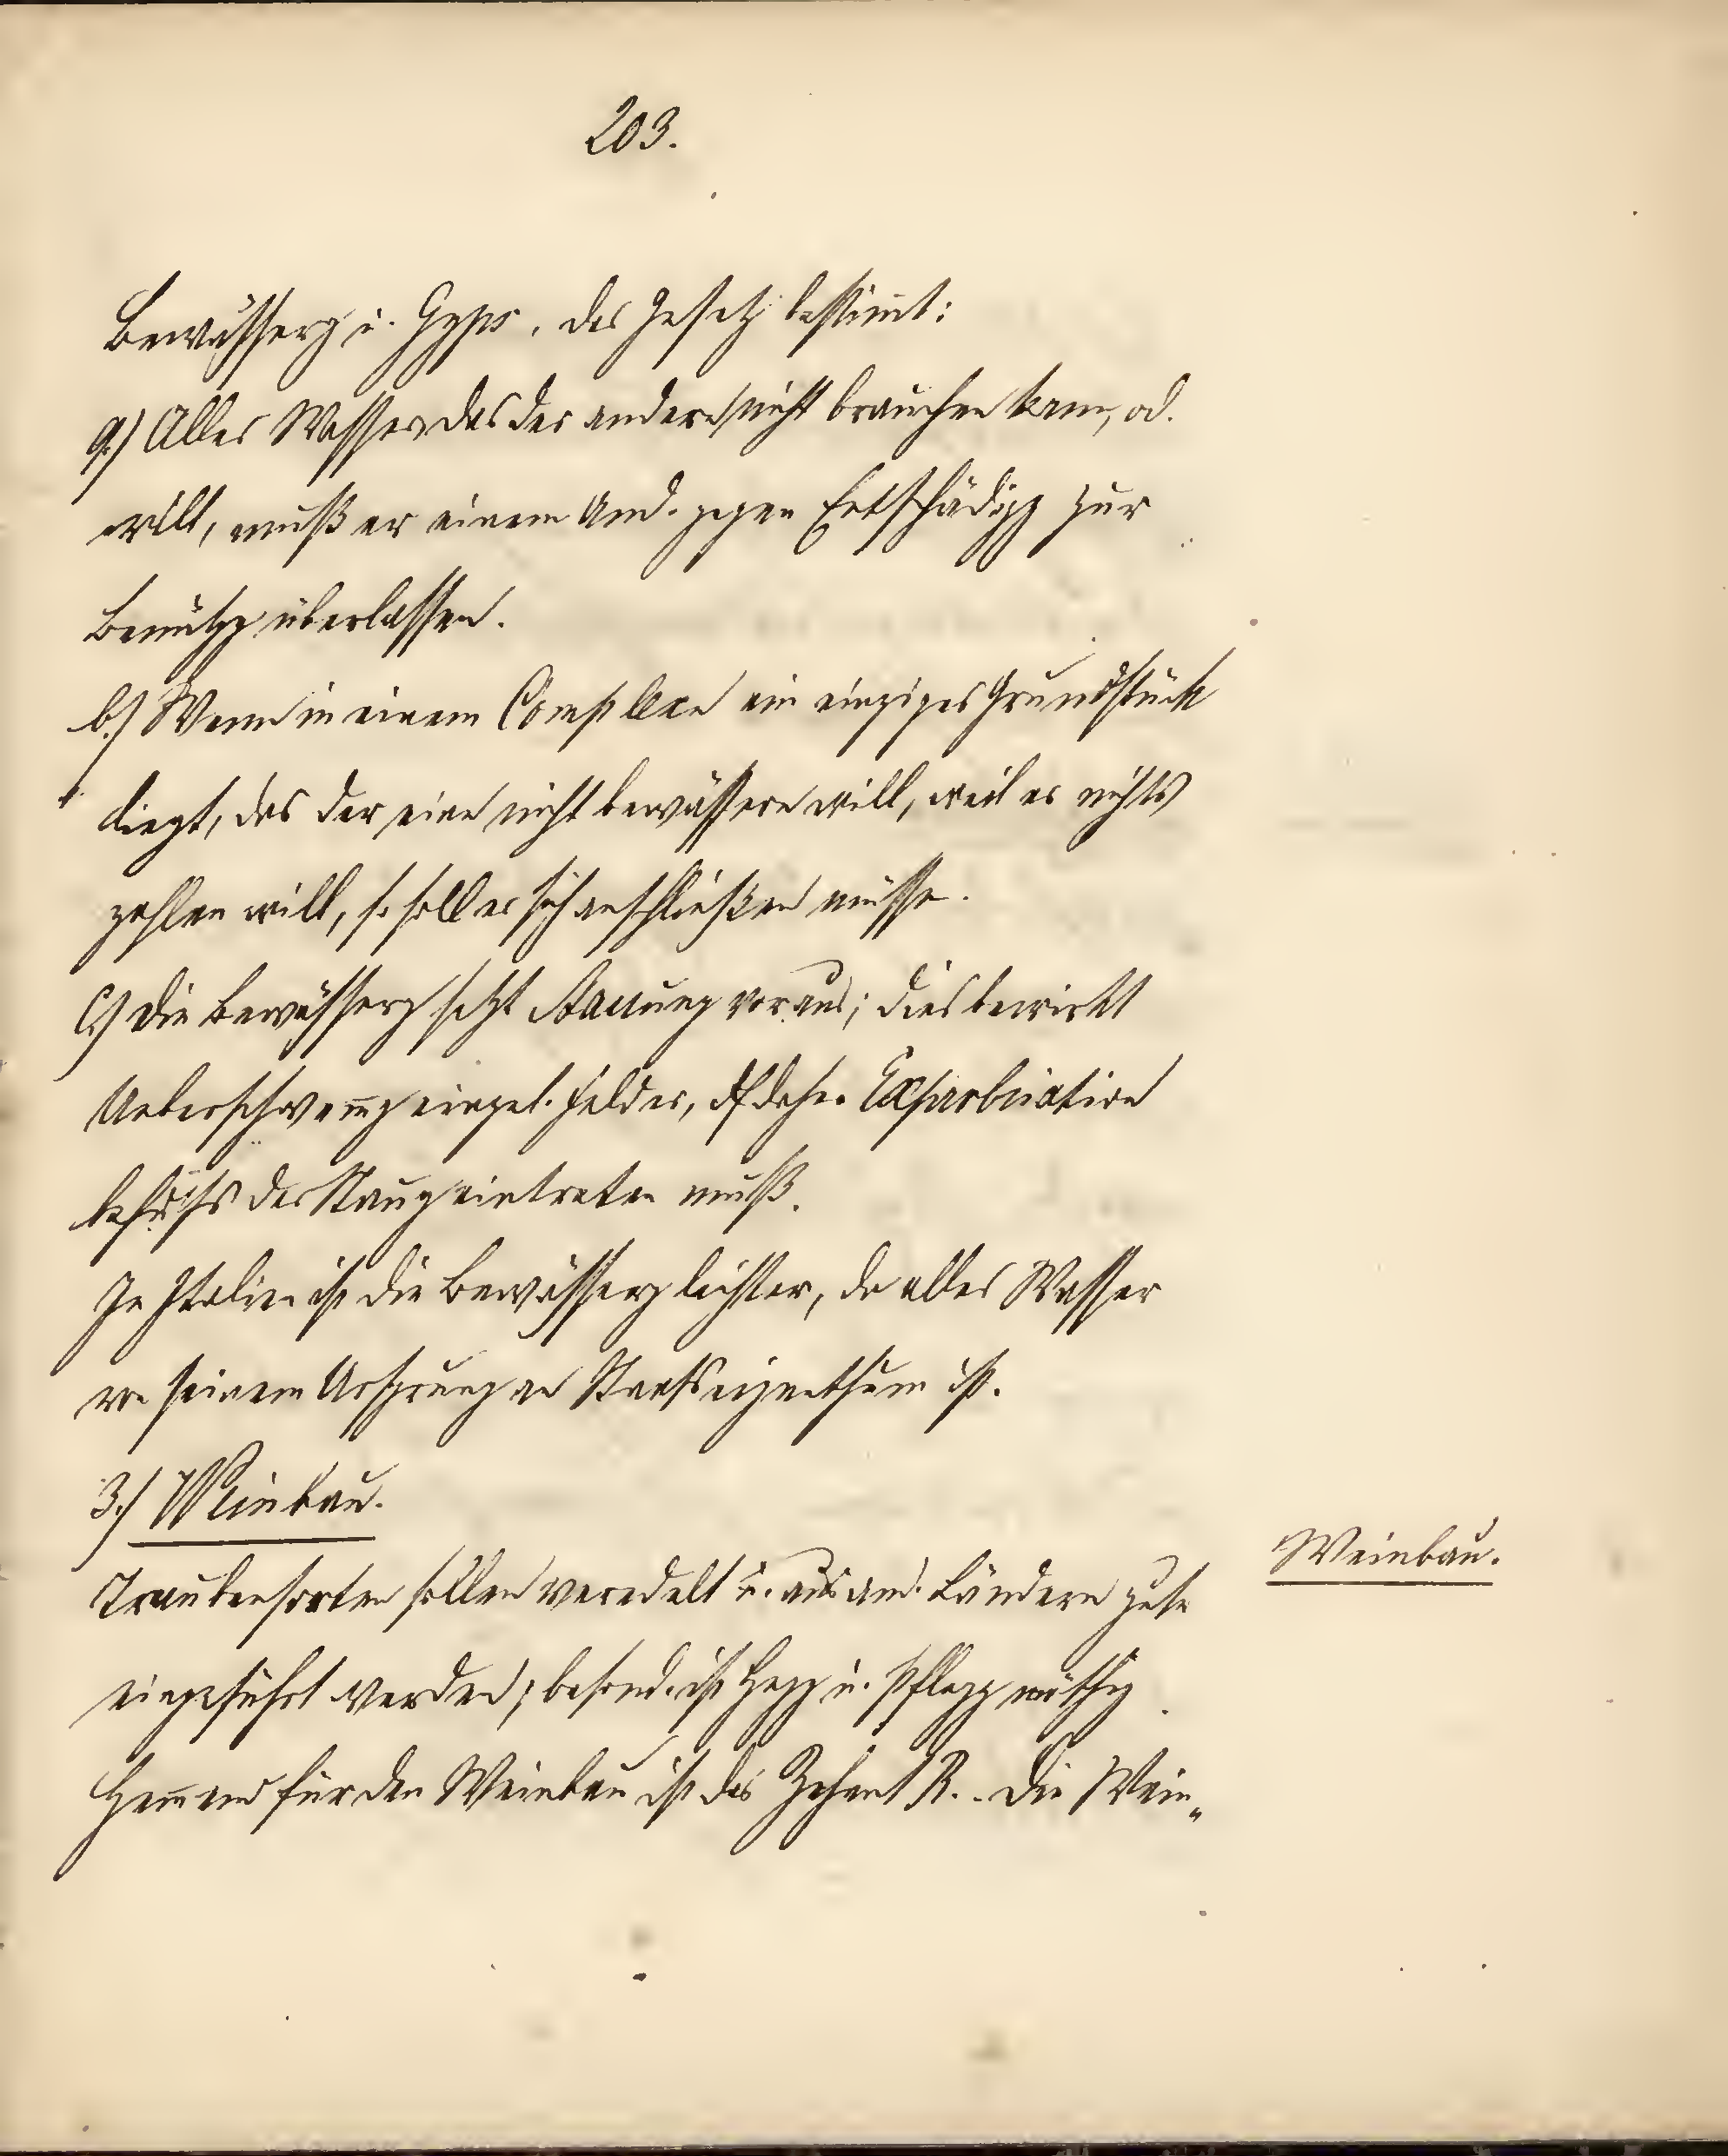 203.
Bewässerg u. Gyps. das Gesetz bestim̄t:
a.) Alles Wasser das der andere nicht brauchen kann, od.
will, muß er einem And. gegen Entschädigg zur
Benützg überlassen.
b.) Wenn in einem Complexe ein einziges Grundstück
liegt, das der eine nicht bewässern will, weil er nichts
zahlen will, so soll er sich anschließen müssen.
c.) Die Bewässerg setzt Stauung voraus; dies bewirkt
Ueberschwem̄g einzel. Felder, daher Expropriation
behufs der Staug eintreten muß.
In Italien ist die Bewässerg leichter, da alles Wasser
von seinem Ursprung an Staatseigenthum ist.
3.) Weinbau.
Weinbau.
Traubensorten sollen veredelt u. aus and. Ländern
eingeführt werden; besond. ist Hegg u. Pflegg nöthig.
Hem̄end für den Weinbau ist das Zehent R. Die Wein„